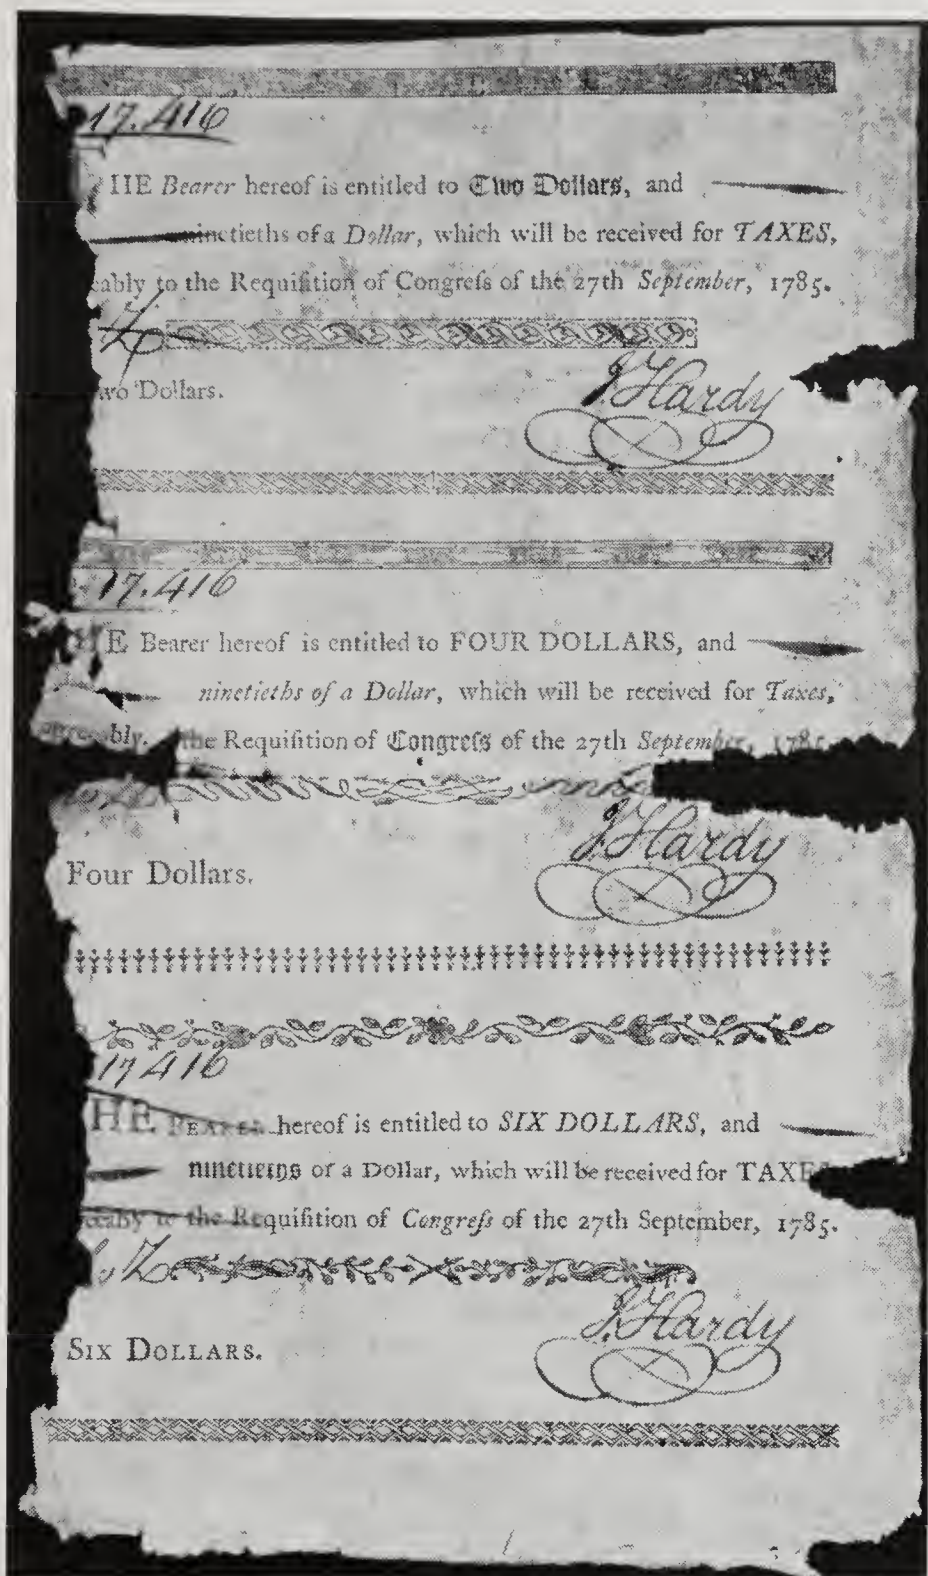 17.416
HE Bearer hereof is entitled to Two Dollars, and
ninetieths of a Dollar, which will be received for TAXES,
eably to the Requiſition of Congreſs of the 27th September, 1785.
J. Hardy
wo Dollars.
17.416
HE Bearer hereof is entitled to FOUR DOLLARS, and
ninetieths of a Dollar, which will be received for Taxes,
agreeably the Requiſition of Congreſs of the 27th September, 1785
J. Hardy
Four Dollars.
17416
HE BEARER hereof is entitled to SIX DOLLARS, and
ninetieths of a Dollar, which will be received for TAXES
eeably to the Requiſition of Congreſs of the 27th September, 1785.
J. Hardy
SIX DOLLARS.